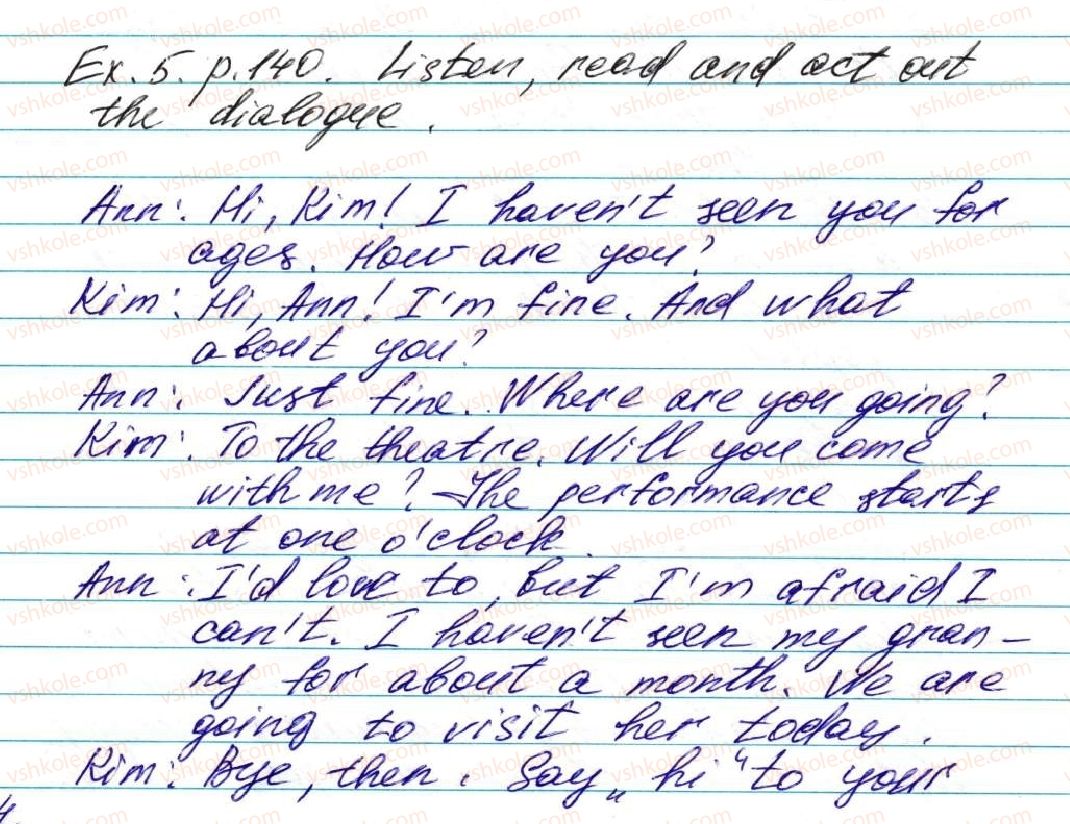 Ex. 5. p. 140. Listen, read and act out
the dialogue.
Ann: Hi, Kim! I haven't seen you for
ages. How are you?
Kim: Hi, Ann! I'm fine. And what
about you?
Ann: Just fine. Where are you going?
Kim: To the theatre. Will you come
with me? The performance starts
at one o'clock.
Ann: I'd love to, but I'm afraid I
can't. I haven't seen my gran-
ny for about a month. We are
going to visit her today.
Kim: Bye, then. Say „hi“ to your